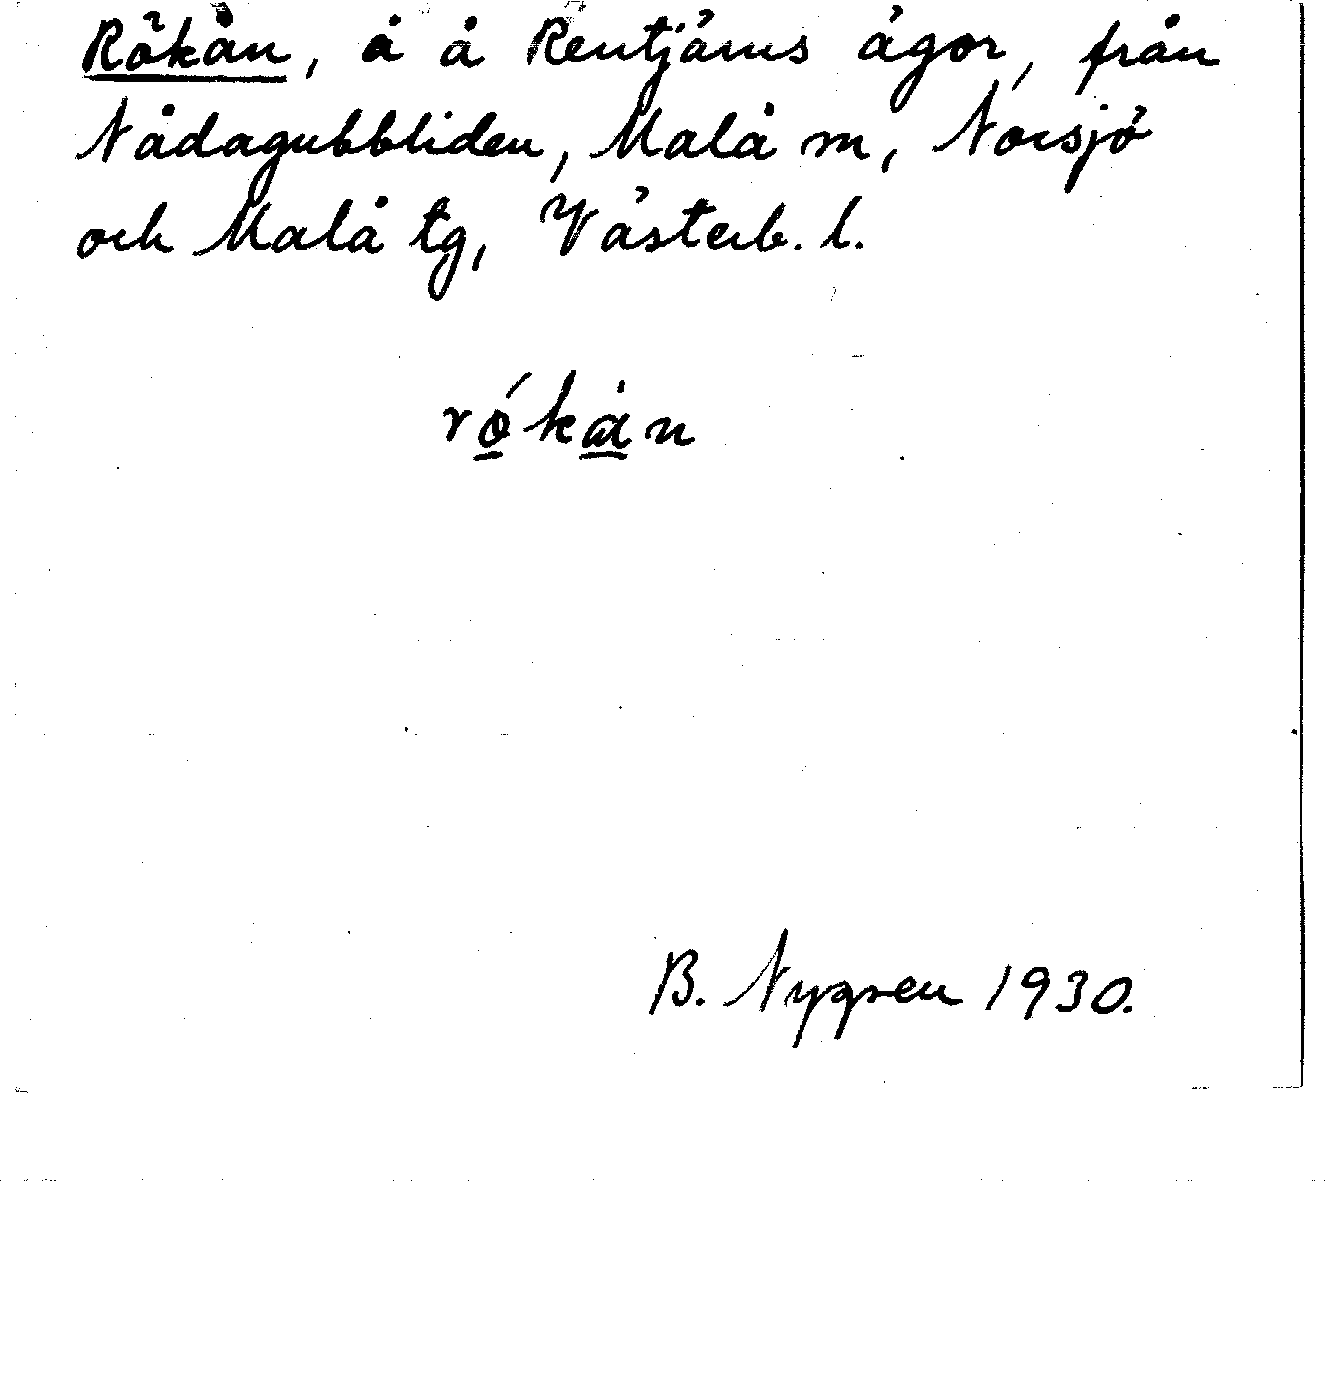 Rökån, å å Rentjärns ägor, från
Nådagubbliden, Malå m, Norsjö
och Malå tg, Västerb. l.
rö́kån
B. Nygren 1930.